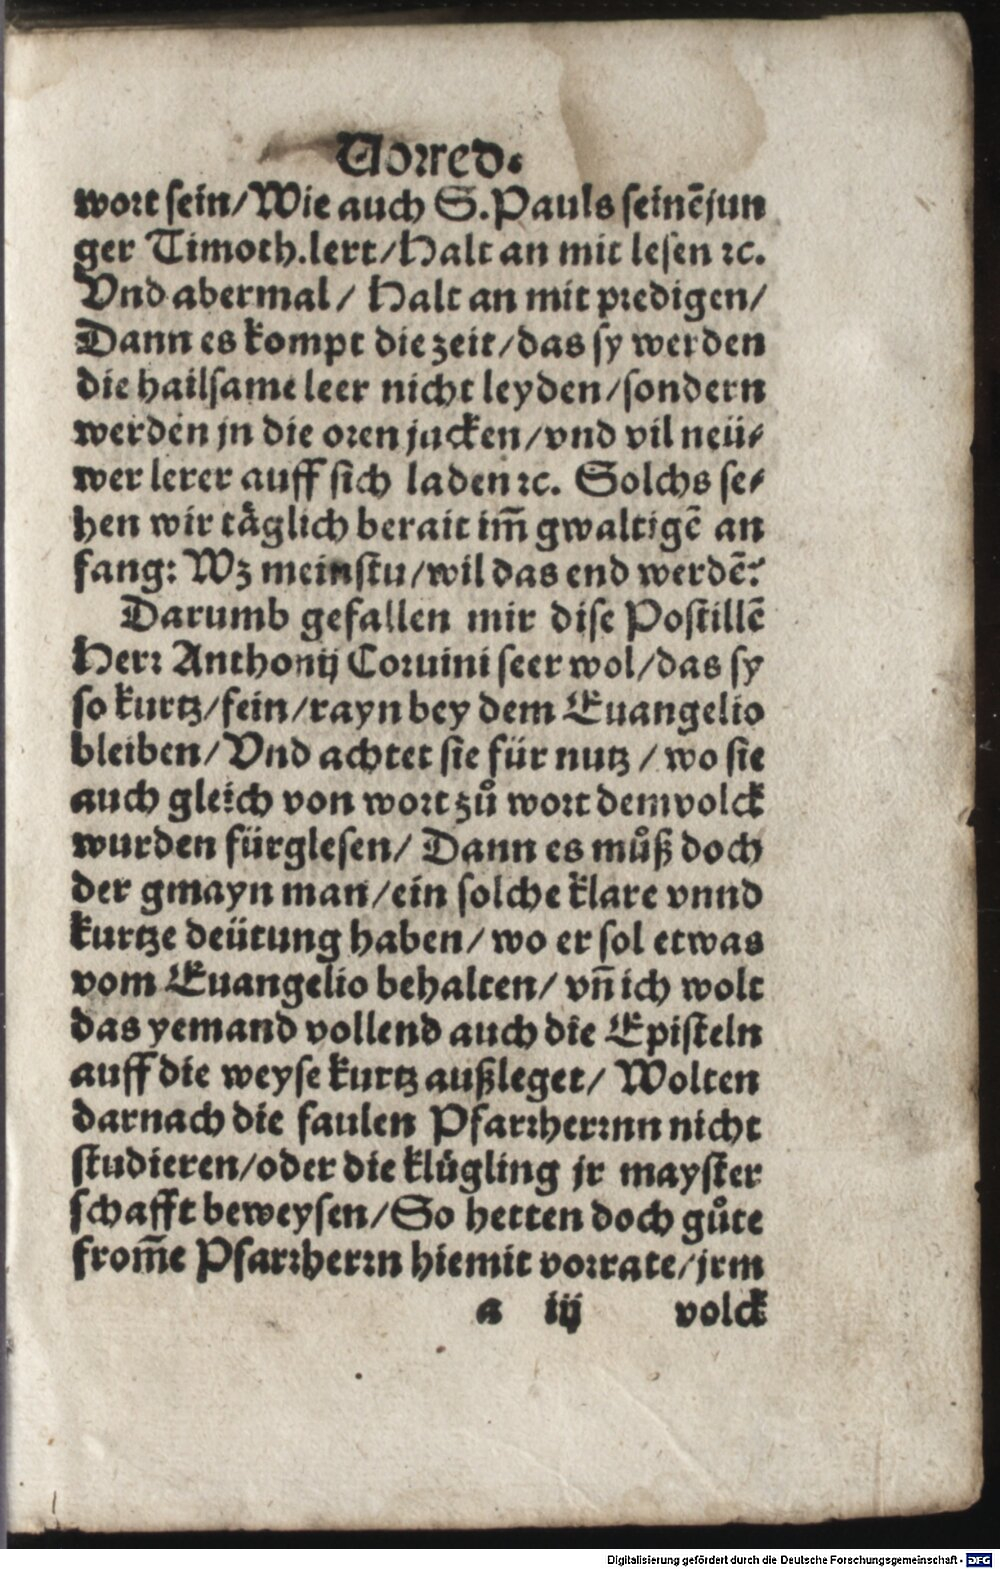 Vorred.
wort sein/Wie auch S.Pauls seinē jun
ger Timoth.lert/Halt an mit lesen ⁊c.
Vnd abermal/ Halt an mit predigen/
Dann es kompt die zeit/das sy werden
die hailsame leer nicht leyden/sondern
werden jn die oren jucken/vnd vil neü⸗
wer lerer auff sich laden ⁊c. Solchs se⸗
hen wir täglich berait im̄ gwaltigē an
fang: Wz meinstu/wil das end werdē?
Darumb gefallen mir dise Postillē
Herr Anthonij Coruini seer wol/das sy
so kurtz/fein/rayn bey dem Euangelio
bleiben/Vnd achtet sie für nutz/ wo sie
auch gleich von wort zů wort dem volck
wurden fürglesen/ Dann es můß doch
der gmayn man/ein solche klare vnnd
kurtze deütung haben/wo er sol etwas
vom Euangelio behalten/ vn̄ ich wolt
das yemand vollend auch die Episteln
auff die weyse kurtz außleget/ Wolten
darnach die faulen Pfarrherrnn nicht
studieren/oder die klügling jr mayster
schafft beweysen/So hetten doch gůte
from̄e Pfarrherrn hiemit vorrate/jrm
a iij volck
Digitalisierung gefördert durch die Deutsche Forschungsgemeinschaft - DFG